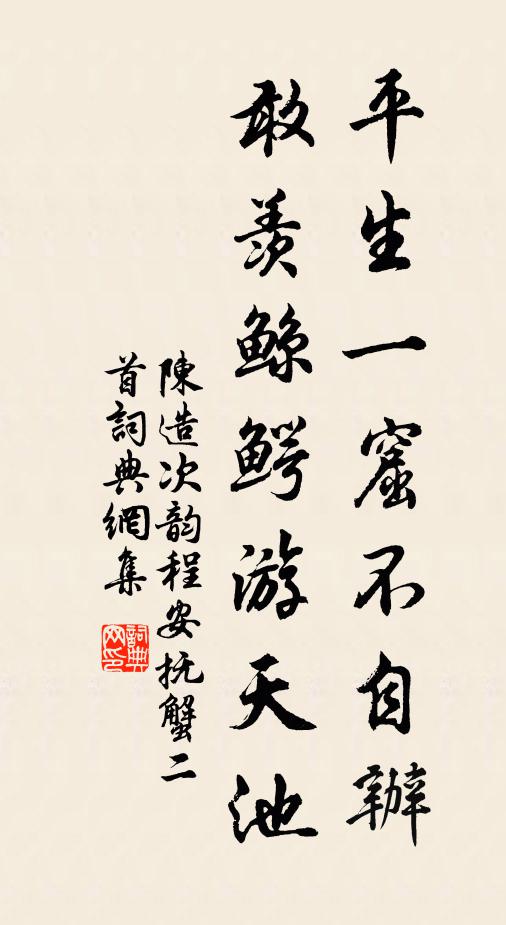 平生一窟不自辦
敢羡鲸鳄游天池
陳造次韵程安抚蟹二
首詞典網集
詞典网印